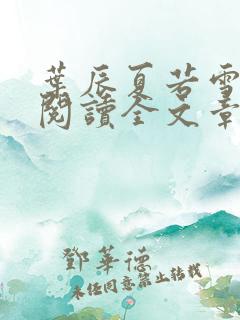 葉辰夏若雪
閱讀全文章
鄧華德
未經同意禁止轉載